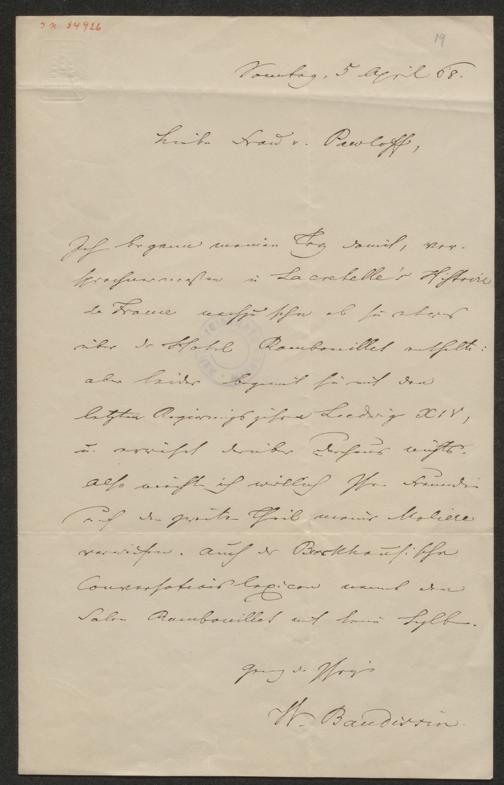 J.N. 34926
19
Sonntag, 5 April 68.
Liebe Frau v. Pawloff,
Ich begann meinen Tag damit, ver-
sprochnermaßen in Lacretelle's Histoire
de France nachzusehn ob sie etwas
über das Hotel Rambouillet enthielte:
aber leider beginnt sie mit den
letzten Regierungsjahren Ludwig XIV,
u. erwähnt darüber durchaus nichts.
Also möchte ich wirklich Ihre Freundin
auf den zweiten Theil meines Moliere
verweisen. Auch das Brockhausische
Conversationslexicon nennt den
Salon Rambouillet mit keiner Sylbe.
Ganz der Ihrige
W. Baudissin.